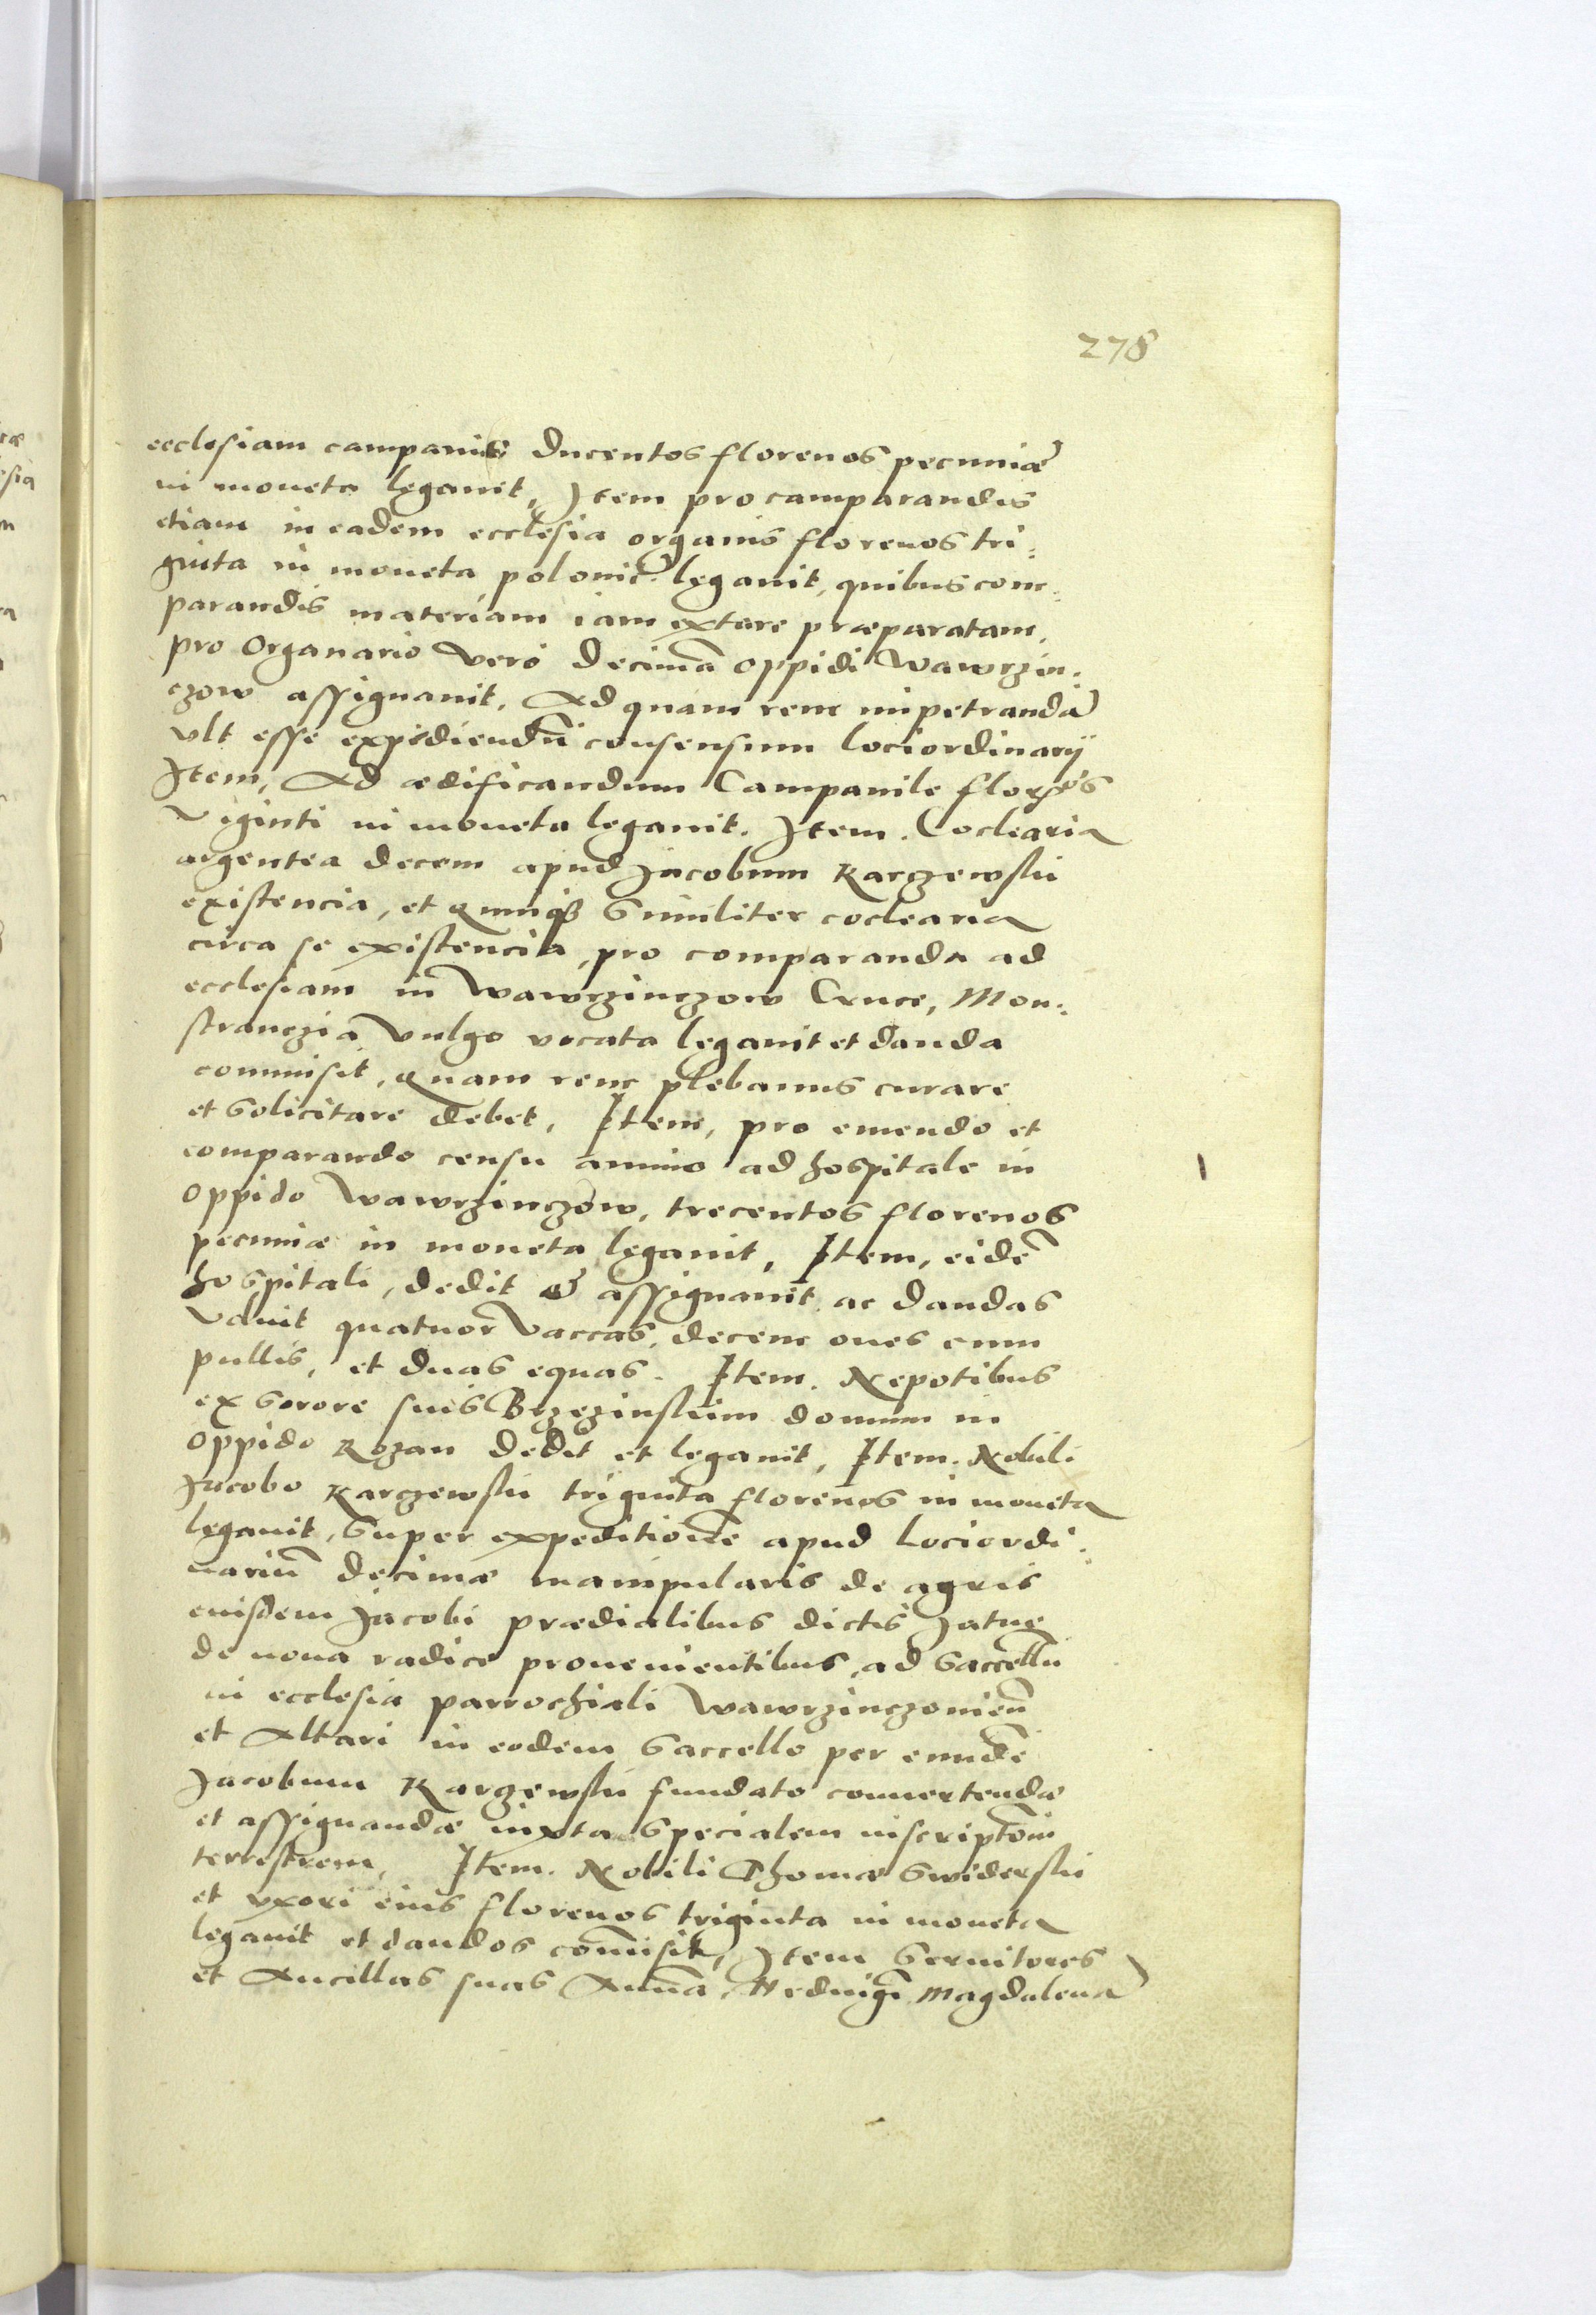 278
ecclesiam campanis ducentos florenos pecuniæ
in moneta legauit, Item pro camparandis
etiam in eadem ecclesia organis florenos tri:
ginta in moneta polonic: legauit, quibus com:
parandis materiam iam extare præparatam,
pro Organario vero decimā oppidi Wawrzin:
czow assignauit, Ad quam rem impetrandā
vlt esse expediendū consensum lociordinarij
Item, Ad ædificandum Campanile floren̄s
viginti in moneta legauit. Item. Coclearia
argentea decem apud Jacobum Karczewski
existencia, et quinqȝ similiter coclearia
circa se existencia, pro comparanda ad
ecclesiam in Wawrzinczow Cruce, Mon:
stranczia vulgo vocata legauit et danda
commisit, quam rem plebanus curare
et solicitare debet, Item, pro emendo et
comparando censu annuo ad hospitale in
oppido Wawrzinczow, trecentos florenos
pecuniæ in moneta legauit, Item, eidē
hospitali, dedit & assignauit ac dandas
voluit quatuor vaccas, decem oues cum
pullis, et duas equas. Item. Nepotibus
ex sorore suis Brzezinskiim domum in
oppido Rozan dedit et legauit, Item. Nobili
Jacobo Karczewski triginta florenos in moneta
legauit, super expeditione apud lociordi:
nariū decimæ manipularis de agris
eiusdem Jacobi prædialibus dictis Jatne
de noua radice prouenientibus, ad saccellū
in ecclesia parrochiali Wawrzinczouien̄
et Altari in eodem saccello per eundē
Jacobum Karczewski fundato conuertendæ
et assignandæ iuxta specialem inscriptōni
terrestrem, Item. Nobili Thomæ Swiderski
et vxori eius florenos triginta in moneta
legauit et dandos com̄isit, Item Seruitores
et Ancillas suas Annā, Heduigē Magdalenā